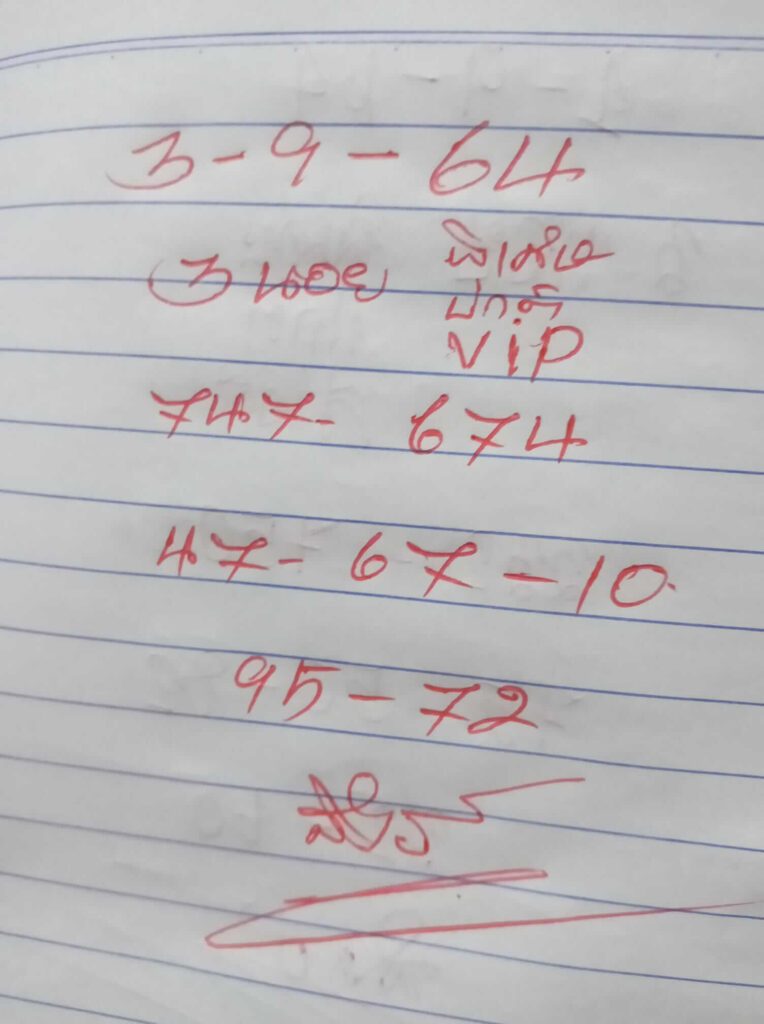 3-9-64
3 นอย พิเศษ
ปกติ
VIP
747- 674
47- 67-10
95-72